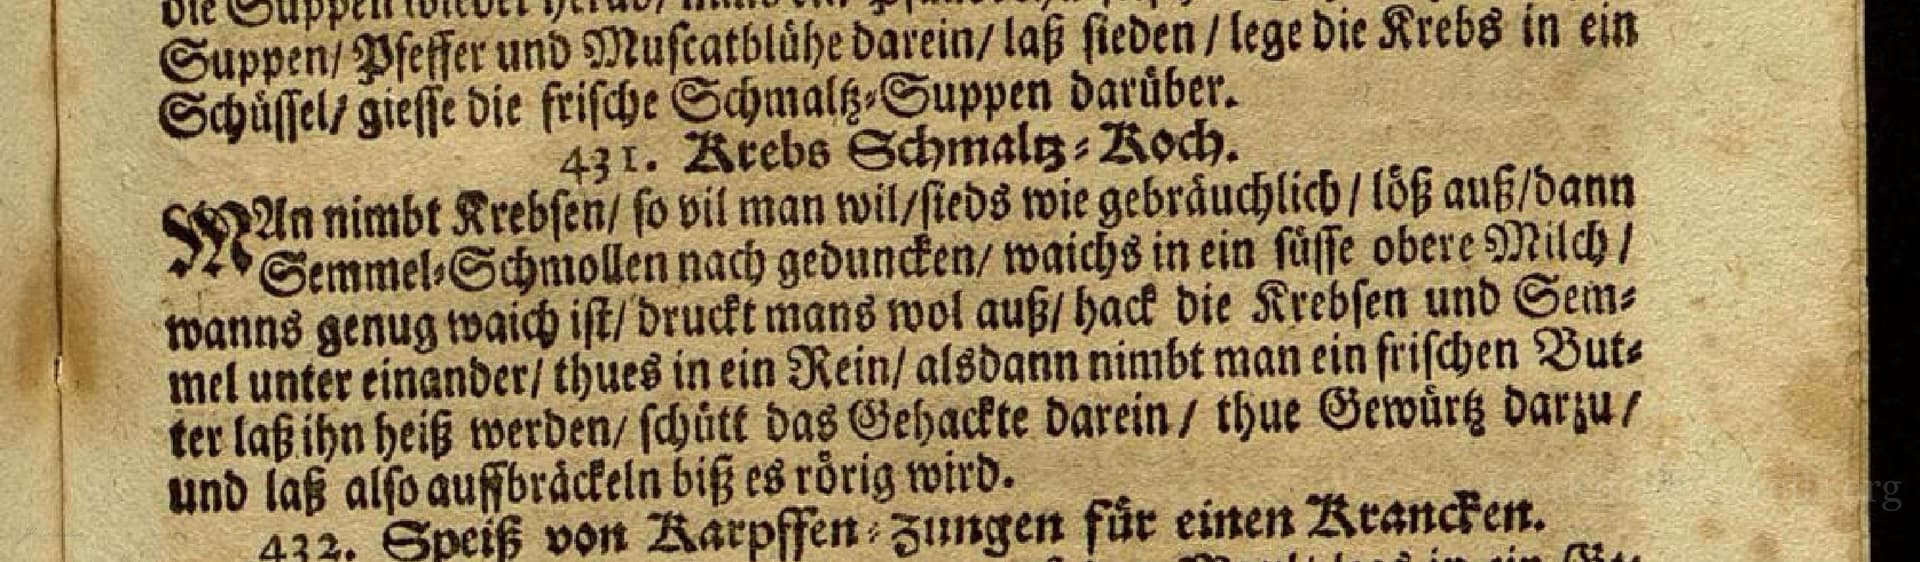 die Suppen wieder herab/
Suppen/ Pfeffer und Muſcatblühe darein/ laß ſieden / lege die Krebs in ein
Schüſſel/ gieſſe die friſche Schmaltz-Suppen darüber.
431. Krebs Schmaltz-Koch.
MAn nimbt Krebſen/ ſo vil man wil/ſieds wie gebräuchlich / löß auß/dann
Semmel-Schmollen nach geduncken/ waichs in ein ſüſſe obere Milch /
wanns genug waich iſt/ druckt mans wol auß/ hack die Krebſen und Sem-
mel unter einander/ thues in ein Rein/ alsdann nimbt man ein friſchen But-
ter laß ihn heiß werden/ ſchütt das Gehackte darein / thue Gewürtz darzu /
und laß alſo auffbräckeln biß es rörig wird.
432. Speiß von Karpffen-Zungen für einen Krancken.
in ein